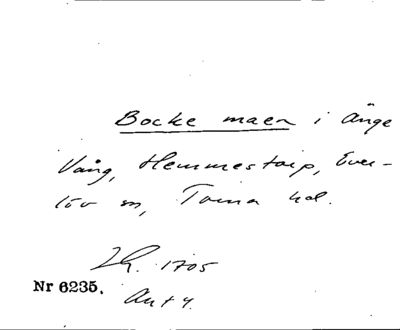 Bocke maen i Änge
Vång, Hemmestorp, Ever-
löv sn, Torna hd.
Lh. 1705
Nr 6235.
Ant 4.